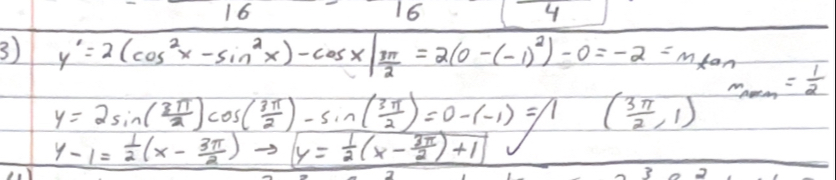 16 16 4
3) y' = 2(cos²x - sin²x) - cosx |3π/2 = 2(0 - (-1)²) - 0 = -2 = m tan
m norm = 1/2
y = 2sin(3π/2)cos(3π/2) - sin(3π/2) = 0 - (-1) = 1 (3π/2, 1)
y - 1 = 1/2(x - 3π/2) → y = 1/2(x - 3π/2) + 1 ✓